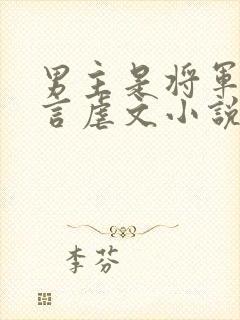 男主是将军
言虐文小说
李芬